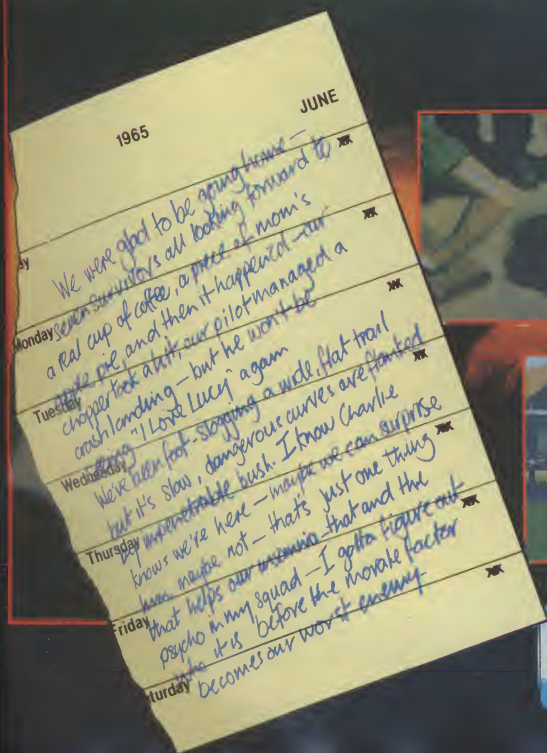 1965
JUNE
We were glad to be going home –
seven survivors all looking forward to
a real cup of coffee, a piece of mom's
apple pie, and then it happened – our
chopper took a hit, our pilot managed a
crash landing – but he won't be
seeing "I Love Lucy" again
We've been foot-slogging a wide, flat trail
but it's slow, dangerous curves are flanked
by impenetrable bush. I know Charlie
knows we're here – maybe we can surprise
him maybe not – that's just one thing
that helps our insomnia – that and the
psycho in my squad – I gotta figure out
who it is before the morale factor
becomes our worst enemy
ay
Monday
Tuesday
Wednesday
Thursday
Friday
turday